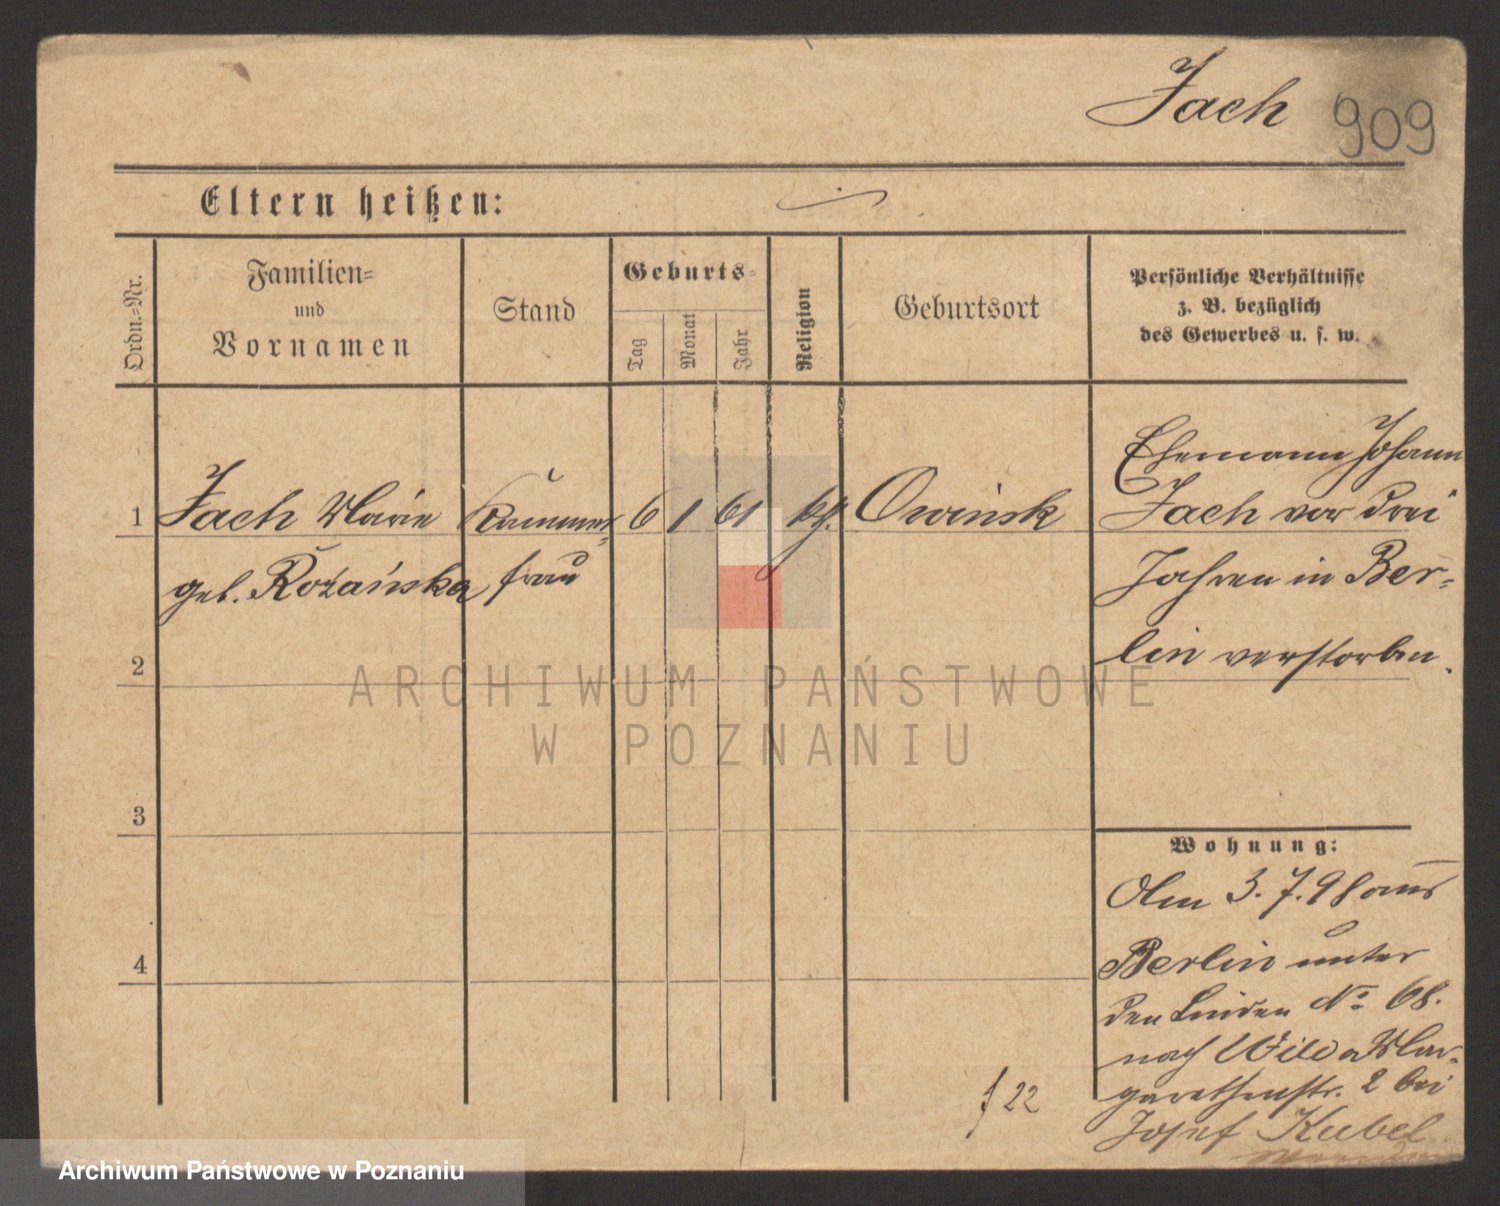 Jach 909
Eltern heißen:
Ordn.-Nr.
Familien-
und
Vornamen
Stand
Geburts-
Tag
Monat
Jahr
Religion
Geburtsort
Persönliche Verhältnisse
z. B. bezüglich
des Gewerbes u. s. w.
1 Jach Marie Kammer= 6 1 61 kth. Owinsk
geb. Rożańska frau
Ehemann Johann
Jach vor drei
Jahren in Ber-
lin verstorben.
2
3
4
Wohnung:
Am 3.7.98 aus
Berlin unter
den Linden No 68.
nach Wilda Mar-
garethenstr. 2 bei
Josef Kubel
f 22
ARCHIWUM PAŃSTWOWE
W POZNANIU
Archiwum Państwowe w Poznaniu